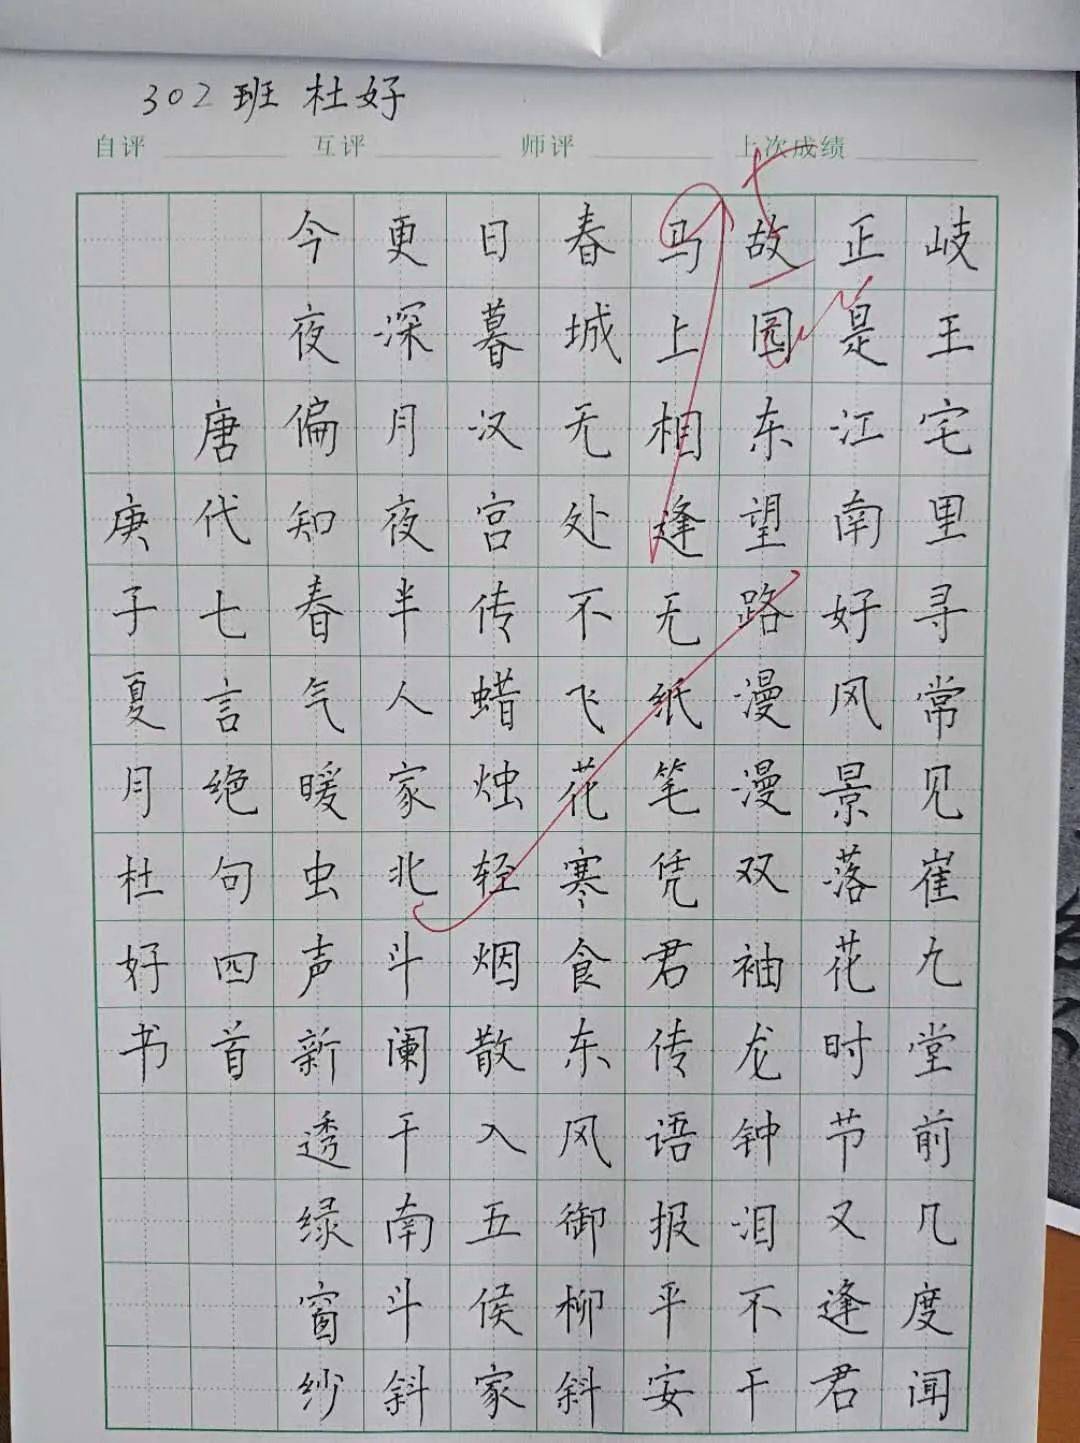 302班 杜好
自评 互评 师评 上次成绩
岐王宅里寻常见崔九堂前几度闻
正是江南好风景落花时节又逢君
故园东望路漫漫双袖龙钟泪不干
马上相逢无纸笔凭君传语报平安
春城无处不飞花寒食东风御柳斜
日暮汉宫传蜡烛轻烟散入五侯家
更深月夜半人家北斗阑干南斗斜
今夜偏知春气暖虫声新透绿窗纱
唐代七言绝句四首
庚子夏月杜好书